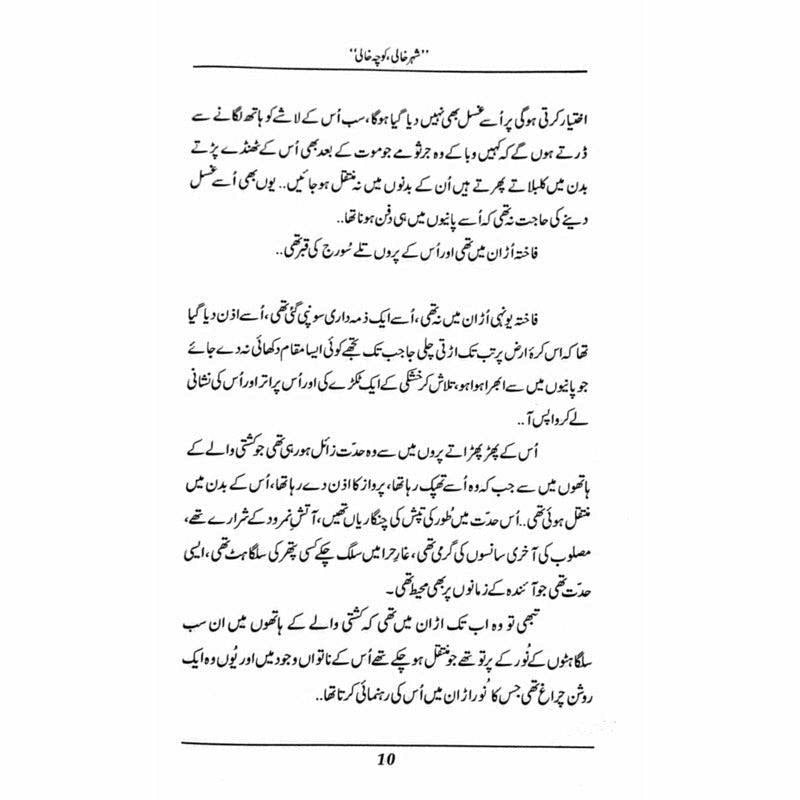 ”شہر خالی، کوچہ خالی“
اختیار کرتی ہوگی پر اُسے غسل بھی نہیں دیا گیا ہوگا، سب اُس کے لاشے کو ہاتھ لگانے سے
ڈرتے ہوں گے کہ کہیں وبا کے وہ جرثومے جو موت کے بعد بھی اُس کے ٹھنڈے پڑتے
بدن میں کلبلاتے پھرتے ہیں اُن کے بدنوں میں نہ منتقل ہو جائیں.. یوں بھی اُسے غسل
دینے کی حاجت نہ تھی کہ اُسے پانیوں میں ہی دفن ہونا تھا..
فاختہ اُڑان میں تھی اور اُس کے پروں تلے سُورج کی قبر تھی..
فاختہ یونہی اُڑان میں نہ تھی، اُسے ایک ذمہ داری سونپی گئی تھی، اُسے اذن دیا گیا
تھا کہ اس کرۂ ارض پر تب تک اڑتی چلی جا جب تک تجھے کوئی ایسا مقام دکھائی نہ دے جائے
جو پانیوں میں سے ابھرا ہوا ہو، تلاش کر خشکی کے ایک ٹکڑے کی اور اُس پر اتر اور اُس کی نشانی
لے کر واپس آ..
اُس کے پھڑپھڑاتے پروں میں سے وہ حدّت زائل ہو رہی تھی جو کشتی والے کے
ہاتھوں میں سے جب کہ وہ اُسے تھپک رہا تھا، پرواز کا اذن دے رہا تھا، اُس کے بدن میں
منتقل ہوئی تھی.. اُس حدّت میں طُور کی تپش کی چنگاریاں تھیں، آتشِ نمرود کے شرارے تھے،
مصلوب کی آخری سانسوں کی گرمی تھی، غارِ حرا میں سلگ چکے کسی پتھر کی سلگاہٹ تھی، ایسی
حدّت تھی جو آئندہ کے زمانوں پر بھی محیط تھی۔
تبھی تو وہ اب تک اڑان میں تھی کہ کشتی والے کے ہاتھوں میں ان سب
سلگاہٹوں کے نُور کے پرتو تھے جو منتقل ہو چکے تھے اُس کے ناتواں وجود میں اور یُوں وہ ایک
روشن چراغ تھی جس کا نُور اڑان میں اُس کی رہنمائی کرتا تھا..
10